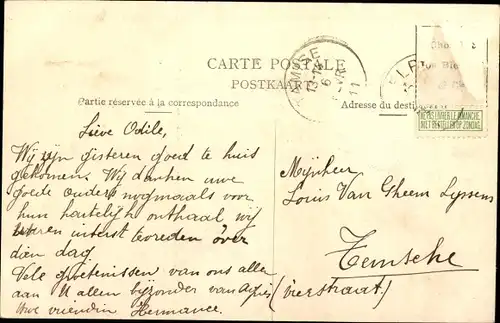 CARTE POSTALE
POSTKAART
Partie réservée à la correspondance
Adresse du
TAMISE
13-14
6
VR
11
NE PAS LIVRER LE DIMANCHE
NIET BESTELLEN OP ZONDAG
Lieve Odile,
Wij zijn gisteren goed te huis
gekomen. Wij danken uwe
goede ouders nogmaals voor
hun hartelijk onthaal, wij
waren uiterst tevreden over
dien dag
Vele groetenissen van ons allen
aan U allen bijzonder van Agnes
Uwe vriendin Hermance.
Mijnheer
Louis Van Gheem Lyssens
Temsche
(vierstraat.)